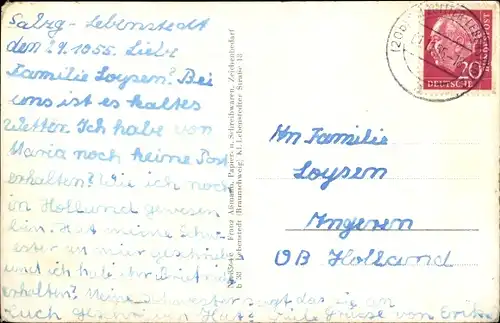 Salzg - Lebenstedt
den 29. 1055. Liebe
Familie Loysen? Bei
uns ist es kaltes
Wetter. Ich habe von
Maria noch keine Post
erhalten? Wie ich noch
in Holland gewesen
bin. Hat meine Schw
ester an mier geschrieb
und ich hab ihr Brief nie
erhalten? Meine Schwester sagt das sie an
euch geschrieben Hat? viele Grüsse von Erika
Franz Aßmann, Papier- u. Schreibwaren, Zeichenbedarf
Lebenstedt (Braunschweig) Kl. Lebenstedter Straße 18
b 30
DEUTSCHE
BUNDESPOST
20
(20b)
An Familie
Loysen
Angeren
OB Holland